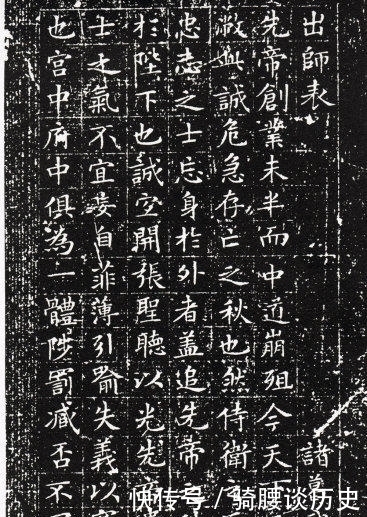 出師表 諸
先帝創業未半而中道崩殂今天
敝此誠危急存亡之秋也然侍衛
忠志之士忘身於外者盖追先帝
於陛下也誠宜開張聖聽以光先
士之氣不宜妄自菲薄引喻失義以
也宮中府中俱為一體陟罰臧否不
快传号／骑腰谈历史